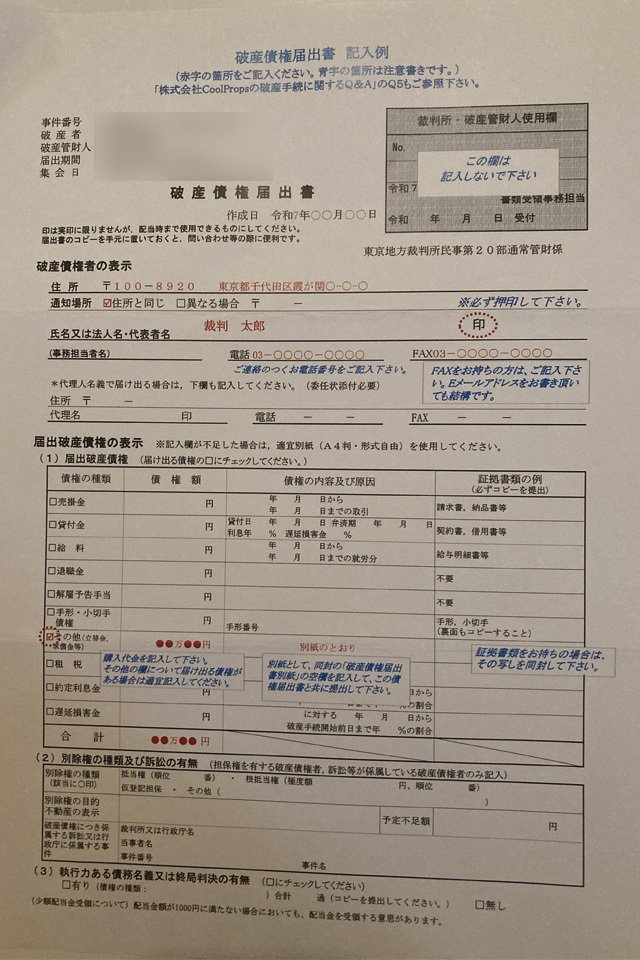 破産債権届出書 記入例
（赤字の箇所をご記入ください。青字の箇所は注意書きです。）
「株式会社CoolPropsの破産手続に関するQ&A」のQ5もご参照下さい。
事件番号
破産者
破産管財人
届出期間
集会日
裁判所・破産管財人使用欄
No.
この欄は
記入しないで下さい
令和7
書類受領事務担当
令和 年 月 日 受付
破産債権届出書
作成日 令和7年〇〇月〇〇日
印は実印に限りませんが、配当時まで使用できるものにしてください。
届出書のコピーを手元に置いておくと、問い合わせ等の際に便利です。
東京地方裁判所民事第20部通常管財係
破産債権者の表示
住所 〒100-8920 東京都千代田区霞が関〇-〇-〇
通知場所 ☑住所と同じ □異なる場合 〒 －
※必ず押印して下さい。
氏名又は法人名・代表者名 裁判 太郎 印
(事務担当者名) 電話 03-〇〇〇〇-〇〇〇〇 FAX03-〇〇〇〇-〇〇〇〇
ご連絡のつくお電話番号をご記入下さい。
FAXをお持ちの方は、ご記入下さ
い。Eメールアドレスをお書き頂い
ても結構です。
＊代理人名義で届け出る場合は、下欄も記入してください。（委任状添付必要）
住所 〒 －
代理名 印 電話 － － FAX － －
届出破産債権の表示 ※記入欄が不足した場合は，適宜別紙（A4判・形式自由）を使用してください。
（1）届出破産債権 （届け出る債権の□にチェックしてください。）
債権の種類 債権額 債権の内容及び原因 証拠書類の例
（必ずコピーを提出）
□売掛金 円 年 月 日から
年 月 日までの取引 請求書，納品書等
□貸付金 円 貸付日 年 月 日 弁済期 年 月 日
利息年 ％ 遅延損害金 ％ 契約書，借用書等
□給料 円 年 月 日から
年 月 日までの就労分 給与明細書等
□退職金 円 不要
□解雇予告手当 円 不要
□手形・小切手
債権 円 手形番号 手形，小切手
（裏面もコピーすること）
☑その他（立替金，
求償金等） ●●万●●円 別紙のとおり
□租税
購入代金を記入して下さい。
その他の欄について届け出る債権が
ある場合は適宜記入してください。
別紙として、同封の「破産債権届出
書別紙」の空欄を記入して、この債
権届出書と共に提出して下さい。
証拠書類をお持ちの場合は、
その写しを同封して下さい。
□約定利息金 円 日から
％の割合
□遅延損害金 円 に対する 年 月 日から
破産手続開始前日まで年 ％の割合
合計 ●●万●●円
（2）別除権の種類及び訴訟の有無 （担保権を有する破産債権者，訴訟等が係属している破産債権者のみ記入）
別除権の種類
（該当に〇印） 抵当権（順位 番）・ 根抵当権（極度額 円、順位 番）
仮登記担保 ・ その他（ ）
別除権の目的
不動産の表示 予定不足額 円
破産債権につき係
属する訴訟又は行
政庁に係属する事
件
裁判所又は行政庁名
当事者名
事件番号 事件名
（3）執行力ある債務名義又は終局判決の有無 （□にチェックしてください）
□有り（債権の種類： ）合計 通（コピーを提出してください。） □無し
（少額配当金受領について）配当金額が1000円に満たない場合においても、配当金を受領する意思があります。